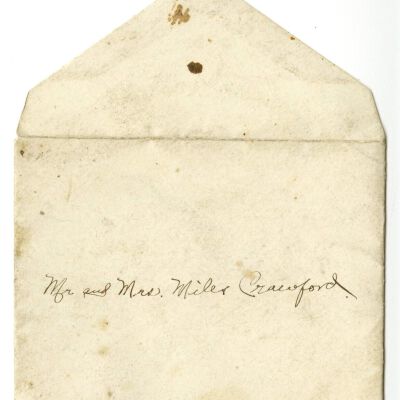 Mr and Mrs. Miles Crawford.